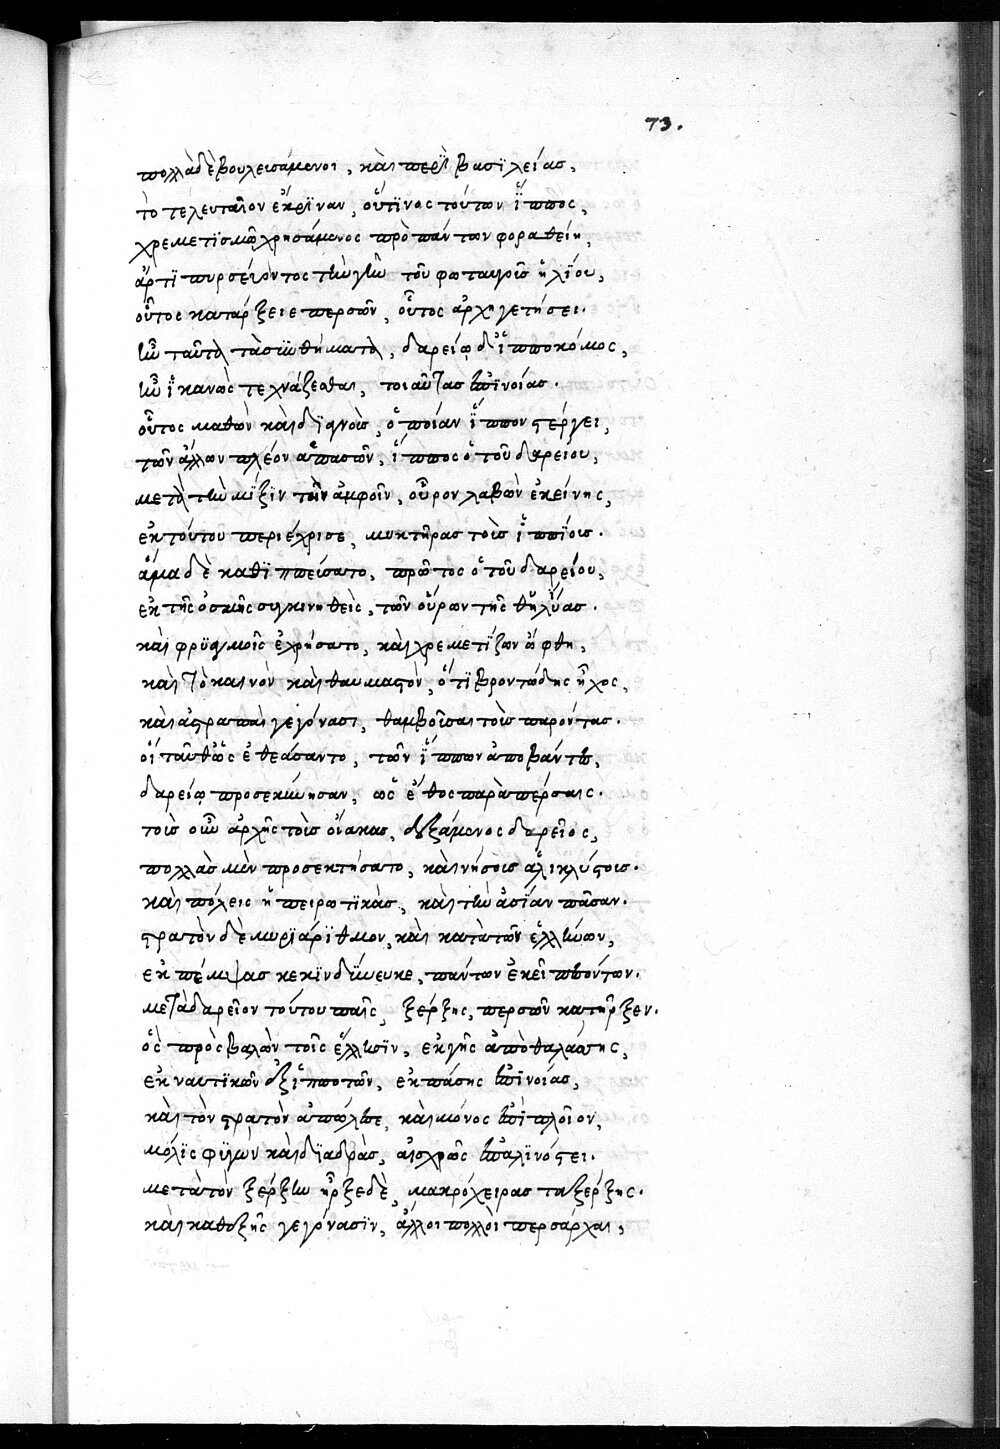 73.
πολλὰ δὲ βουλευσάμενοι, καὶ περὶ βασϊλείας,
τὸ τελευταῖον ἔκρϊναν, οὗτϊνος τούτων ἵππος,
χρεμετϊσμῷ χρησάμενος πρὸ πάντων φοραθείη,
ἄρτϊ πυρσεύοντος τὴν γῆν τοῦ φωταυγοῦς ἡλίου,
οὗτος κατάρξειε περσῶν, οὗτος ἀρχηγετήσει.
ἦν ταῦτα τὰ συνθήματα, δαρείῳ δ' ἱπποκόμος,
ἦν ἱκανῶς τεχνάζεσθαι, τοιαύτας ἐπϊνοίας.
οὗτος μαθὼν καὶ δϊαγνοὺς, ὁποίαν ἵππον στέργει,
τῶν ἄλλων πλέον ἁπασῶν, ἵππος ὁ τοῦ δαρείου,
μετὰ τὴν μῖξϊν τὴν ἀμφοῖν, οὖρον λαβὼν ἐκείνης,
ἐκ τούτου περιέχρισε, μυκτῆρας τοὺς ἱππϊους.
ἅμα δὲ καθϊππεύσατο, πρῶτος ὁ τοῦ δαρείου,
ἐκ τῆς ὀσμῆς συγκινηθεὶς, τῶν οὔρων τῆς θηλείας.
καὶ φρϋαγμοῖς ἐχρήσατο, καὶ χρεμετίζων ὤφθη,
καὶ τὸ καινὸν καὶ θαυμαστὸν, ὅτϊ βροντώδης ἦχος,
καὶ ἀστραπαὶ γεγόνασι, θαμβοῦσαι τοὺς παρόντας.
οἱ ταῦθ' ὡς ἐθεάσαντο, τῶν ἵππων ἀποβάντες,
δαρείῳ προσεκύνησαν, ὡς ἔθος παρὰ πέρσαις.
τοὺς οὖν ἀρχῆς τοὺς οἴακας, δεξάμενος δαρεῖος,
πολλὰς μὲν προσεκτήσατο, καὶ νήσους ἁλικλύστους.
καὶ πόλεις ἠπειρωτϊκὰς, καὶ τὴν ἀσίαν πᾶσαν.
στρατὸν δὲ μυριάρϊθμον, καὶ κατὰ τῶν ἑλλήνων,
ἐκπέμψας κεκϊνδύνευκε, πάντων ἐκεῖ πεσόντων.
μετὰ δαρεῖον τούτου παῖς, ξέρξης, περσῶν κατῆρξεν.
ὃς προσβαλὼν τοῖς ἕλλησϊν, ἐκ γῆς ἀπὸ θαλάσσης,
ἐκ ναυτϊκῶν ἐξ ἱπποτῶν, ἐκ πάσης ἐπϊνοίας,
καὶ τὸν στρατὸν ἀπώλεσε, καὶ μόνος ἐπὶ πλοῖον,
μόλϊς φϋγὼν καὶ δϊαδρὰς, αἰσχρῶς ἐπαλϊνόστει.
μετὰ τὸν ξέρξην ἦρξε δὲ, μακρόχειρ ἀρταξέρξης.
καὶ καθεξῆς γεγόνασϊν, ἄλλοι πολλοὶ περσάρχαι,